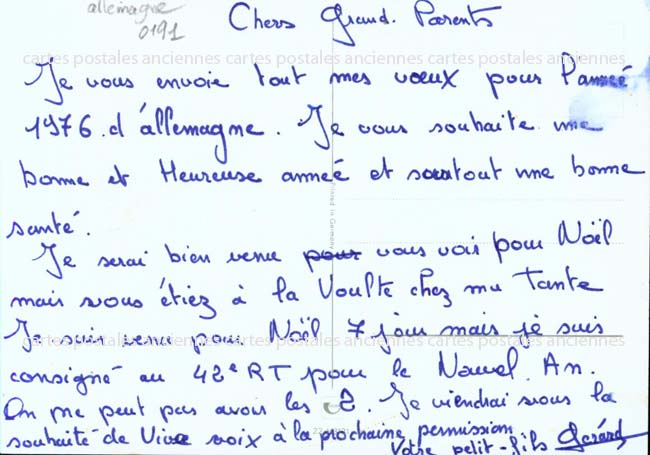 allemagne
0191
Chers Grand. Parents
cartes postales anciennes cartes postales anciennes cartes postales anciennes
Je vous envoie tout mes vœux pour l'anneé
1976 d'állemagne. Je vous souhaite une
bonne et Heureuse anneé et surtout une bonne
santé.
Je serai bien venu pour vous voir pour Noël
mais vous étiez à la Voulte chez ma Tante
Je suis venu pour Noël 7 jour mais je suis
cartes postales anciennes cartes postales anciennes cartes postales anciennes
consigné au 42e RT pour le Nouvel. An.
On ne peut pas avoir les 2. Je viendrai vous la
souhaité de Vive voix à la prochaine permission
Votre petit-fils Gérard
Printed in Germany